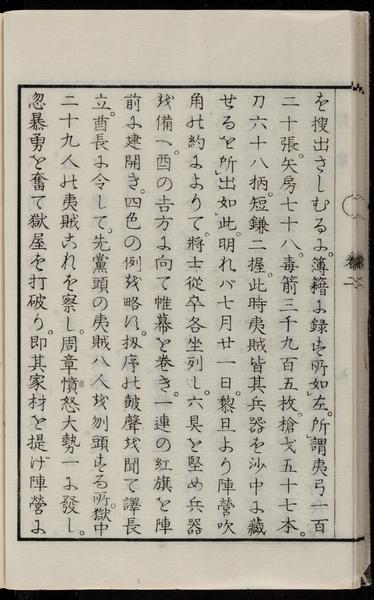 を搜出さしむるに簿籍に録する所如左所謂夷弓一百
二十張矢房七十八毒箭三千九百五枚槍戈五十七本
刀六十八柄短鎌二握此時夷賊皆其兵器を沙中に藏
せると所出如此明れバ七月廿一日黎旦より陣營吹
角の約によりて將士從卒各坐列し六具を堅め兵器
を備へ酉の吉方に向て帷幕を卷き一連の紅旗を陣
前に建開き四色の例を略す扨序の皷聲を聞て譯長
立酋長に令して先黨頭の夷賊八人を刎頭する所獄中
二十九人の夷賊これを察し周章憤怒大勢一に發し
忽暴勇を奮て獄屋を打破り即其家材を提げ陣營に